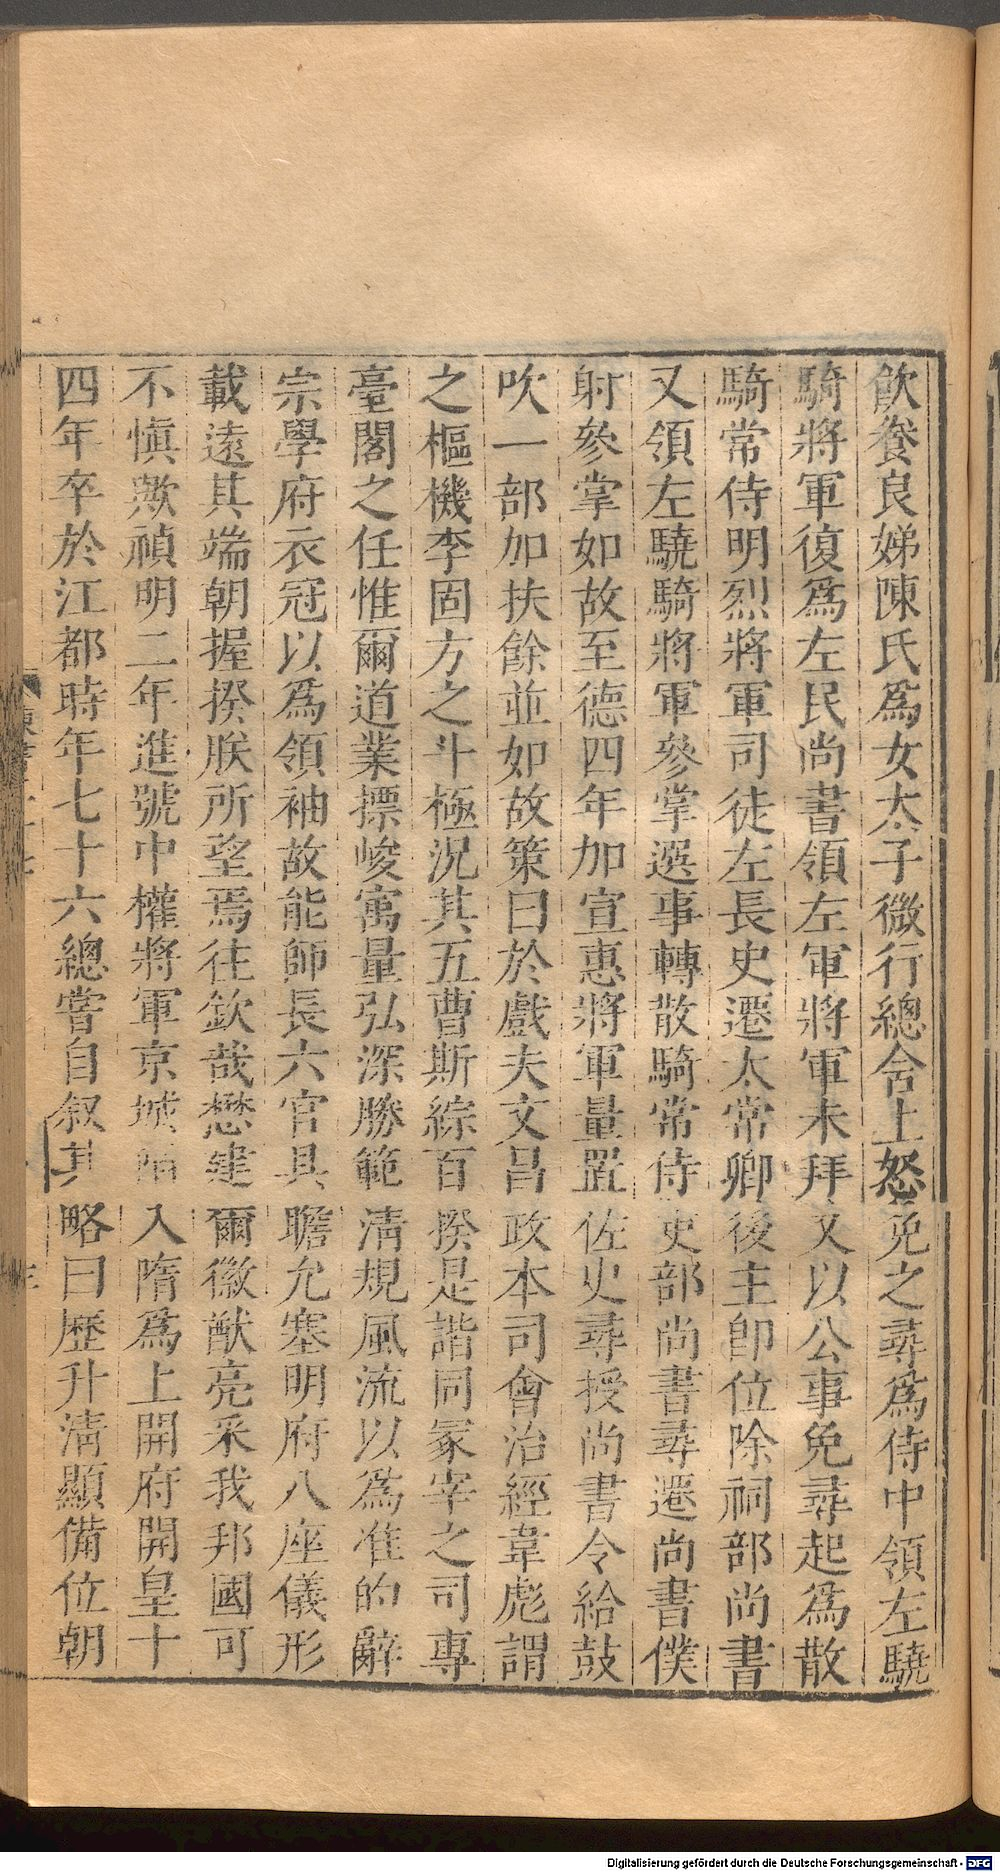 飲養良娣陳氏爲女太子微行總舍上怒免之尋爲侍中領左驍
騎將軍復爲左民尚書領左軍將軍未拜又以公事免尋起爲散
騎常侍明烈將軍司徒左長史遷太常卿後主卽位除祠部尚書
又領左驍騎將軍參掌選事轉散騎常侍吏部尚書尋遷尚書僕
射參掌如故至德四年加宣惠將軍量置佐史尋授尚書令給鼓
吹一部加扶餘並如故策曰於戲夫文昌政本司會治經韋彪謂
之樞機李固方之斗極況其五曹斯綜百揆是諧同冢宰之司專
臺閣之任惟爾道業摽峻寓量弘深勝範淸規風流以爲准的辭
宗學府衣冠以爲領袖故能師長六官具瞻允塞明府八座儀形
載遠其端朝握揆朕所望焉往欽哉懋建爾徽猷亮采我邦國可
不慎歟禎明二年進號中權將軍京城陷入隋爲上開府開皇十
四年卒於江都時年七十六總嘗自叙其略曰歷升淸顯備位朝
Digitalisierung gefördert durch die Deutsche Forschungsgemeinschaft - DFG